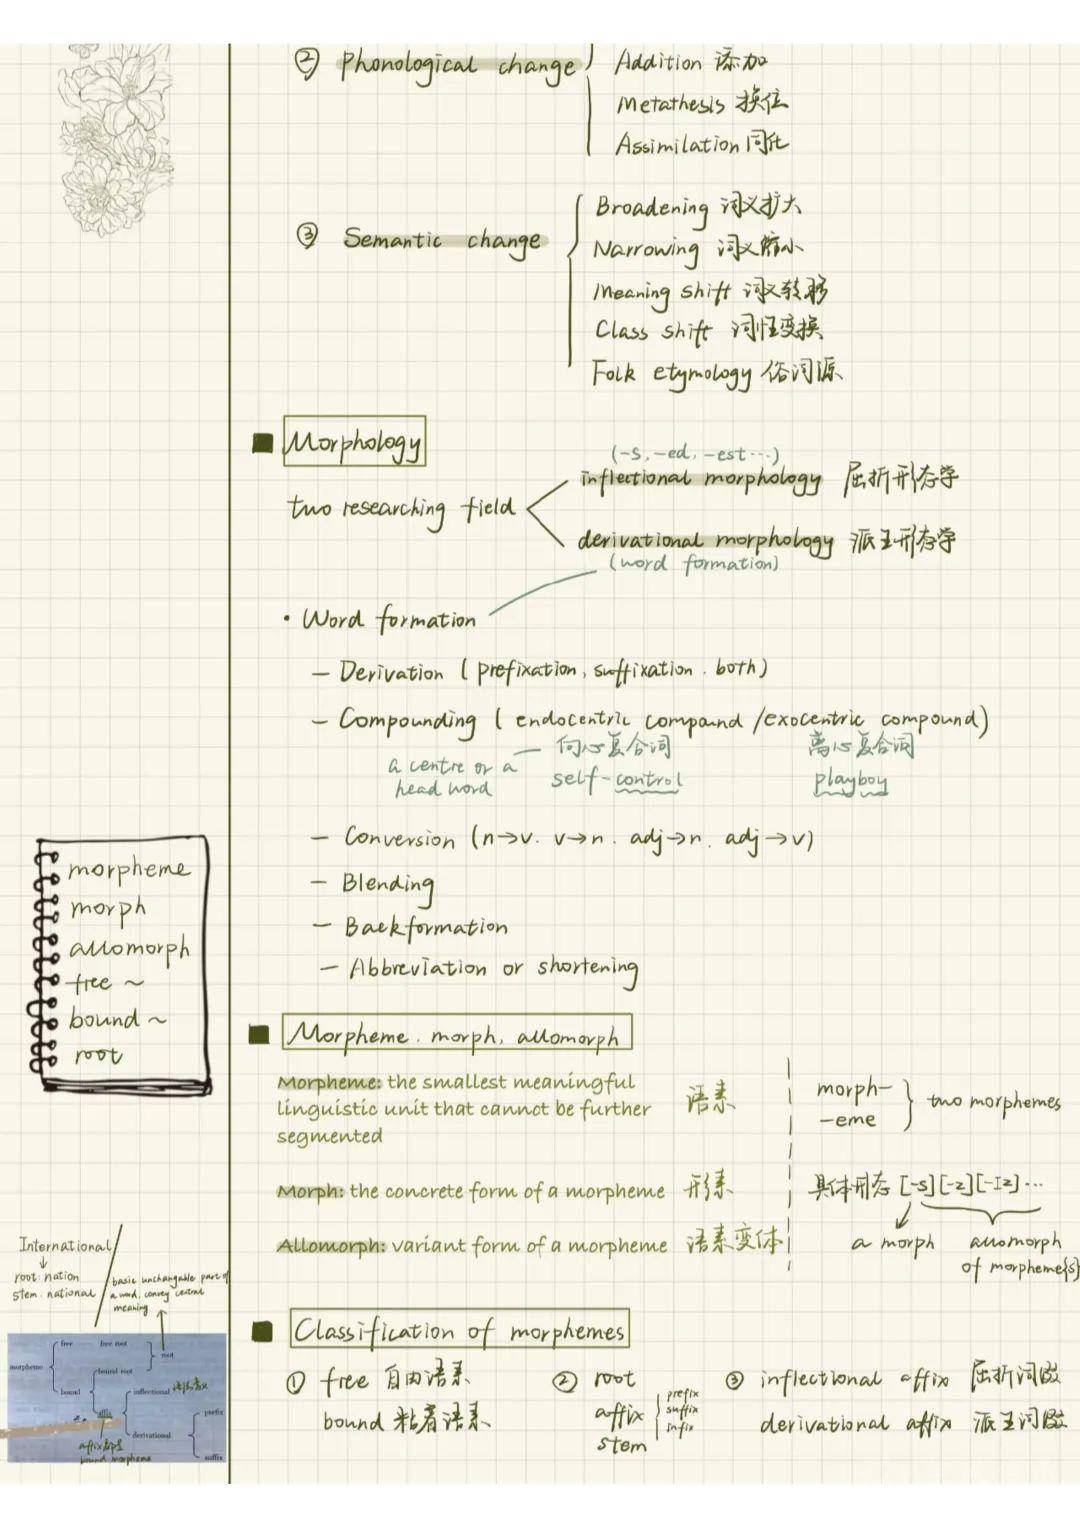 ② Phonological change
Addition 添加
Metathesis 换位
Assimilation 同化
③ Semantic change
Broadening 词义扩大
Narrowing 词义缩小
Meaning shift 词义转移
Class shift 词性变换
Folk etymology 俗词源
Morphology
two researching field
(-s, -ed, -est…)
inflectional morphology 屈折形态学
derivational morphology 派生形态学
(word formation)
· Word formation
— Derivation (prefixation, suffixation. both)
— Compounding (endocentric compound/exocentric compound)
a centre or a head word
— 向心复合词
self-control
离心复合词
playboy
— Conversion (n→v. v→n. adj→n. adj→v)
— Blending
— Backformation
— Abbreviation or shortening
morpheme
morph
allomorph
free ~
bound ~
root
Morpheme. morph, allomorph
Morpheme: the smallest meaningful
linguistic unit that cannot be further
segmented
语素
morph-
-eme
two morphemes
Morph: the concrete form of a morpheme 形素
具体形态 [-s][-z][-Iz]…
Allomorph: variant form of a morpheme 语素变体
a morph
allomorph
of morpheme{s}
International
↓
root: nation
stem: national
basic unchangable part of
a word, convey central
meaning
morpheme
free
free root
root
bound
bound root
affix
inflectional
derivational
prefix
suffix
bound morpheme
Classification of morphemes
① free 自由语素
bound 粘着语素
② root
affix
stem
prefix
suffix
infix
③ inflectional affix 屈折词缀
derivational affix 派生词缀